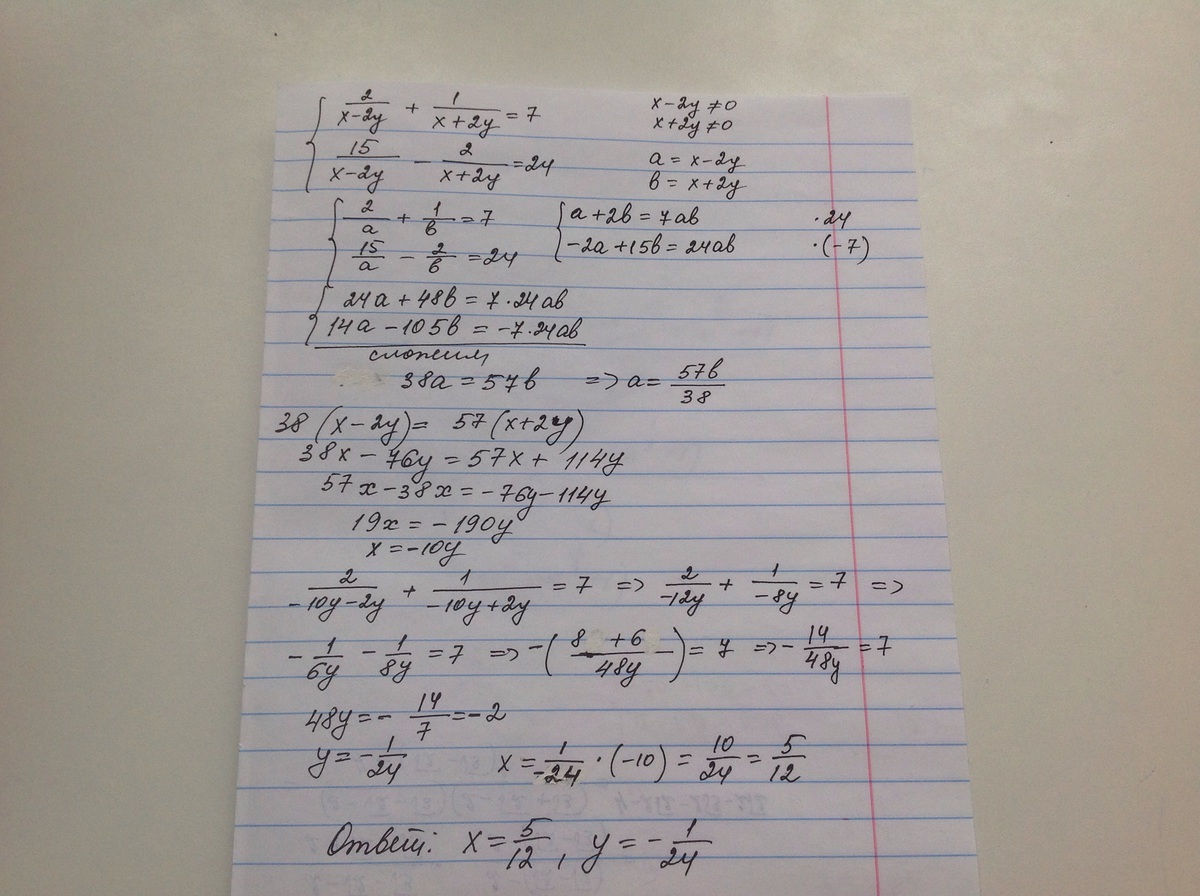 { 2/(x-2y) + 1/(x+2y) = 7     x-2y ≠ 0
x+2y ≠ 0
15/(x-2y) - 2/(x+2y) = 24     a = x-2y
в = x+2y
{ 2/a + 1/в = 7     { a+2в = 7aв     ·24
15/a - 2/в = 24     -2a+15в = 24aв     ·(-7)
{ 24a+48в = 7·24aв
14a-105в = -7·24aв
сложим
38a = 57в => a = 57в/38
38(x-2y) = 57(x+2y)
38x-76y = 57x+114y
57x-38x = -76y-114y
19x = -190y
x = -10y
2/(-10y-2y) + 1/(-10y+2y) = 7 => 2/(-12y) + 1/(-8y) = 7 =>
- 1/6y - 1/8y = 7 => -( (8 +6)/48y ) = 7 => - 14/48y = 7
48y = - 14/7 = -2
y = - 1/24     x = 1/-24 · (-10) = 10/24 = 5/12
Ответ: x = 5/12, y = - 1/24